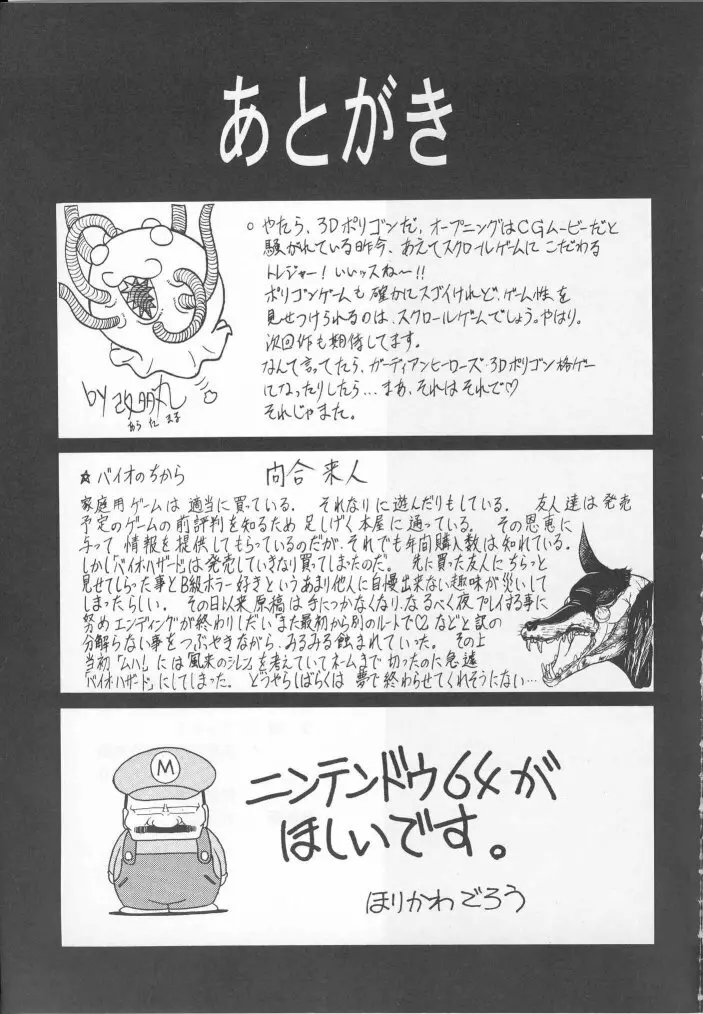 あとがき
○ やたら、3Dポリゴンだ、オープニングはCGムービーだと
騒がれている昨今、あえてスクロールゲームに こだわる
トレジャー!いいッスね〜!!
ポリゴンゲームも 確かにスゴイけれど、ゲーム性を
見せつけられるのは、スクロールゲームでしょう。やはり。
次回作も期待してます。
なんて言ってたら、ガーディアンヒーローズ・3Dポリゴン格ゲー
になったりしたら...まあ、それはそれで♡
それじゃまた。
by
☆バイオのちから 向合 来人
家庭用ゲームは 適当に買っている。 それなりに遊んだりもしている。 友人達は発売
予定のゲームの前評判を知るため 足しげく本屋に通っている。 その恩恵に
与って 情報を提供してもらっているのだが、それでも年間購入数は知れている。
しかし「バイオハザード」は発売していきなり買ってしまったのだ。 先に買った友人にちらっと
見せてしらった事とB級ホラー好きというあまり他人に自慢出来ない趣味が災いして
しまったらしい。 その日以来 原稿は手につかなくなり、なるべく夜プレイする事に
努め エンディングが終わりしだい"また最初から別のルートで♡"などと訳の
分解らない事をつぶやきながら、みるみる蝕まれていった。 その上
当初「ムハ!」には「風来のシレン」を考えていてネームまで切ったのに急遽
「バイオハザード」にしてしまった。 どうやらしばらくは 夢で終わらせてくれそうにない…
M
ニンテンドウ64が
ほしいです。
ほりかわごろう